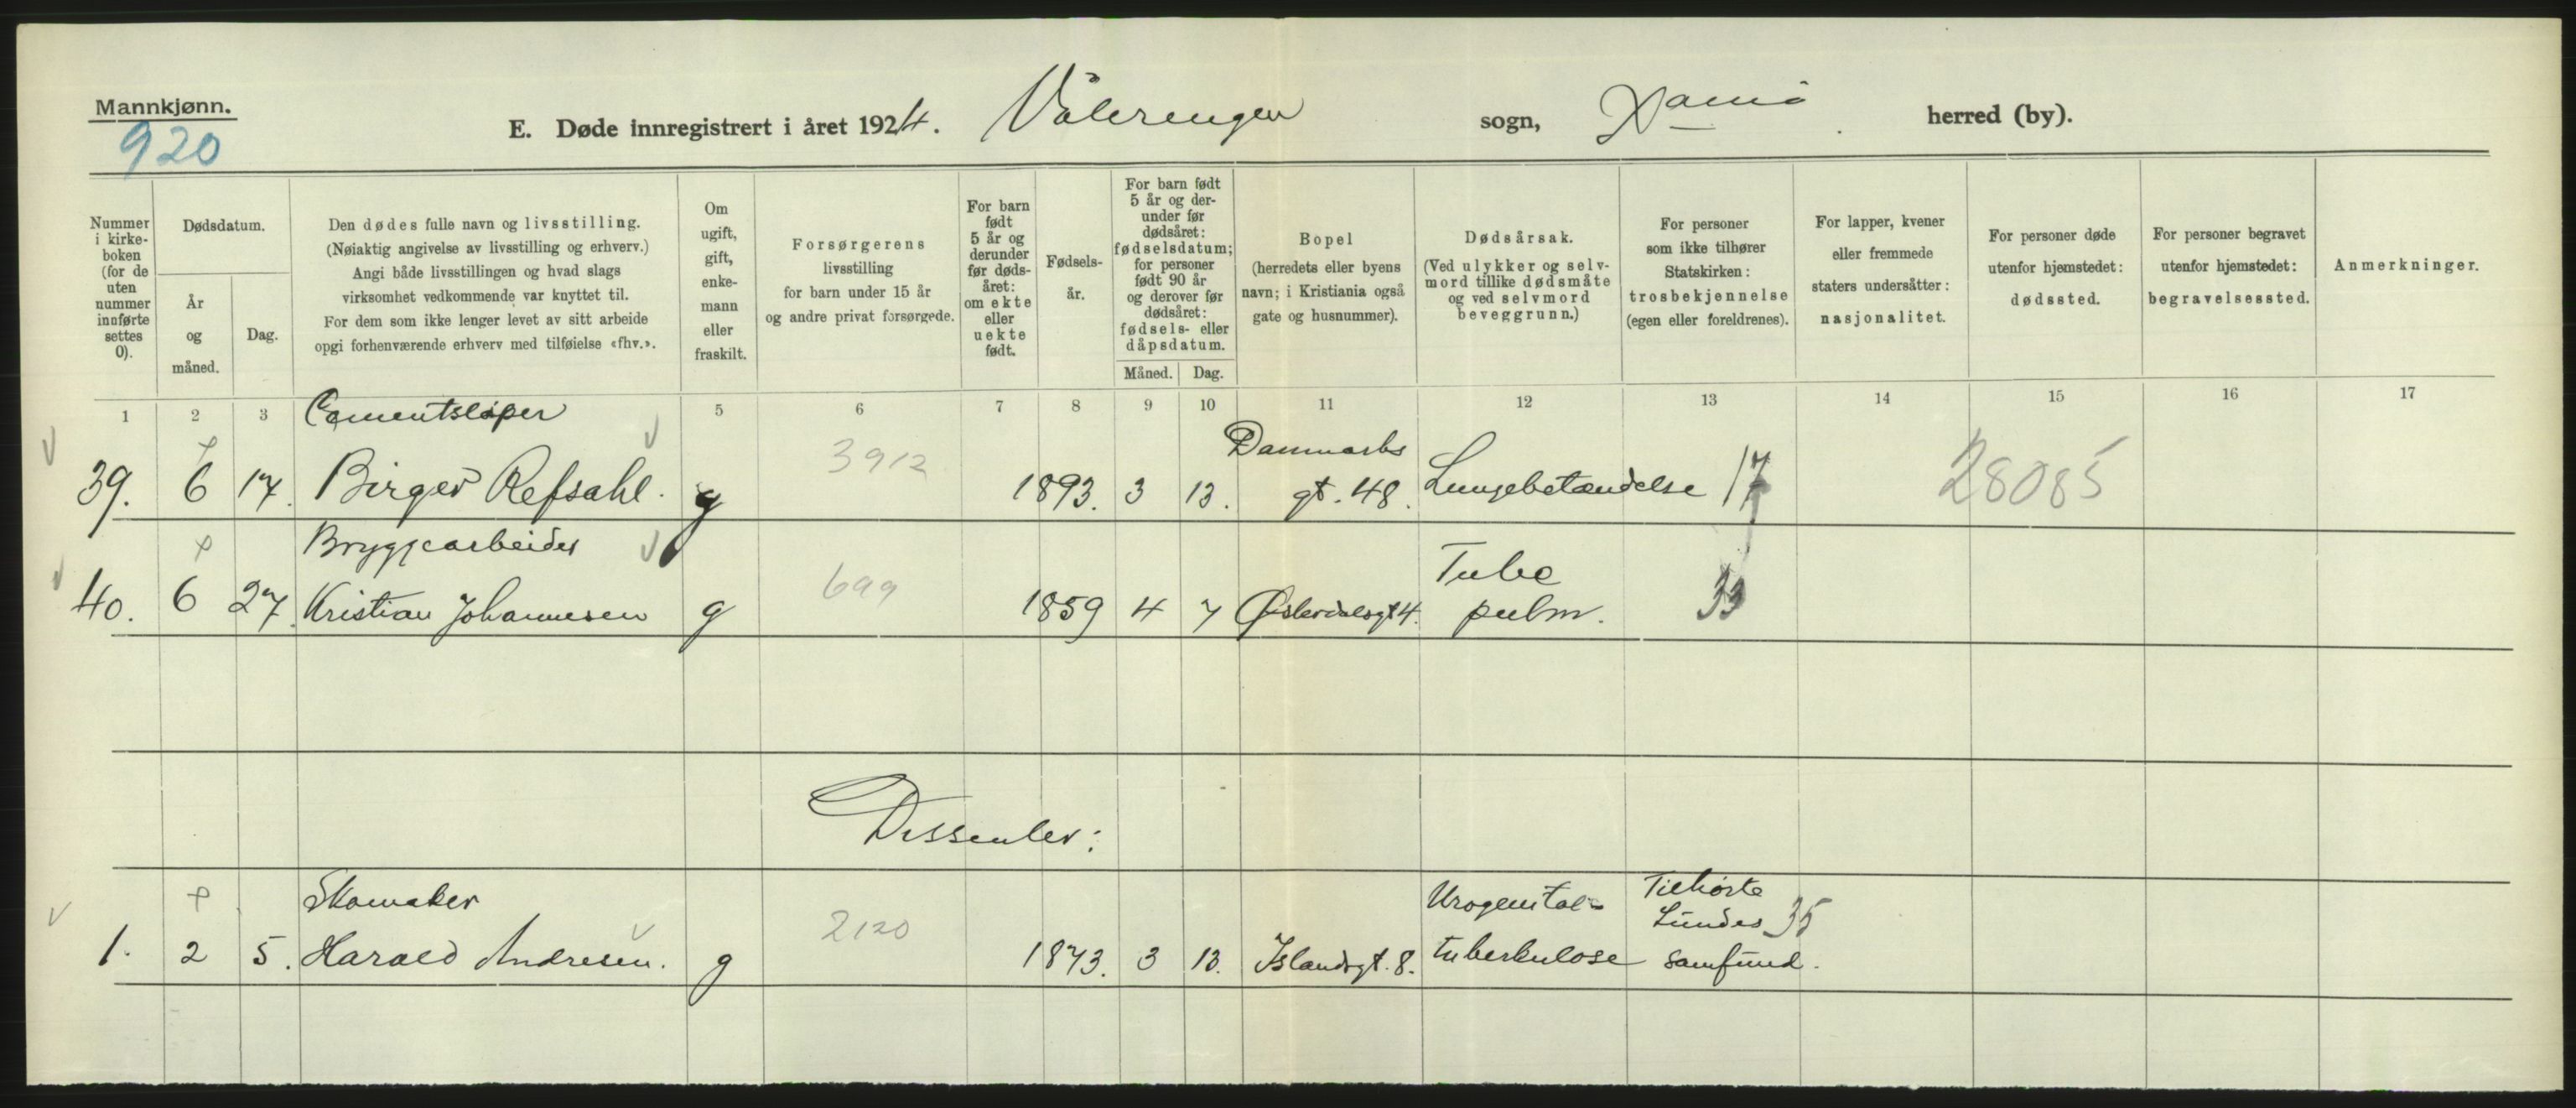 Mannkjønn.
920
E. Døde innregistrert i året 1924. Vålerengen sogn, Xania herred (by).
Nummer i kirke- boken (for de uten nummer innførte settes 0).
Dødsdatum.
År og måned.
Dag.
Den dødes fulle navn og livsstilling.
(Nøiaktig angivelse av livsstilling og erhverv.)
Angi både livsstillingen og hvad slags
virksomhet vedkommende var knyttet til.
For dem som ikke lenger levet av sitt arbeide
opgi forhenværende erhverv med tilføielse «fhv.».
Om ugift, gift, enke- mann eller fraskilt.
Forsørgerens
livsstilling
for barn under 15 år
og andre privat forsørgede.
For barn født 5 år og derunder før døds- året: om ekte eller uekte født.
Fødsels- år.
For barn født 5 år og der- under før dødsåret: fødselsdatum; for personer født 90 år og derover før dødsåret: fødsels- eller dåpsdatum.
Måned. Dag.
Bopel
(herredets eller byens
navn; i Kristiania også
gate og husnummer).
Dødsårsak.
(Ved ulykker og selv-
mord tillike dødsmåte
og ved selvmord
beveggrunn.)
For personer
som ikke tilhører
Statskirken:
trosbekjennelse
(egen eller foreldrenes).
For lapper, kvener
eller fremmede
staters undersåtter:
nasjonalitet.
For personer døde
utenfor hjemstedet:
dødssted.
For personer begravet
utenfor hjemstedet:
begravelsessted.
Anmerkninger.
1 2 3 5 6 7 8 9 10 11 12 13 14 15 16 17
Cementsløper
39. 6 17. Birger Refsahl. g 3912 1893. 3 13. Danmarks gt. 48. Lungebetændelse 17 28085
Bryggearbeider
40. 6 27. Kristian Johannesen g 699 1859 4 7 Østerdalsgt 4. Tube pulm. 33
Dissenter:
Skomaker
1. 2 5. Harald Andresen. g 2120 1873. 3 13. Islandsgt. 8. Urogenital- tuberkulose Tilhørte Lundes samfund. 35